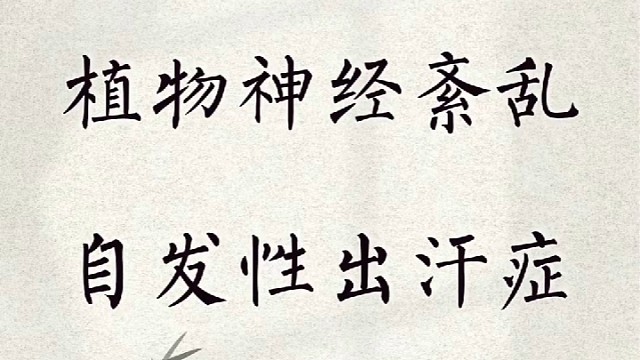 植物神经紊乱
自发性出汗症